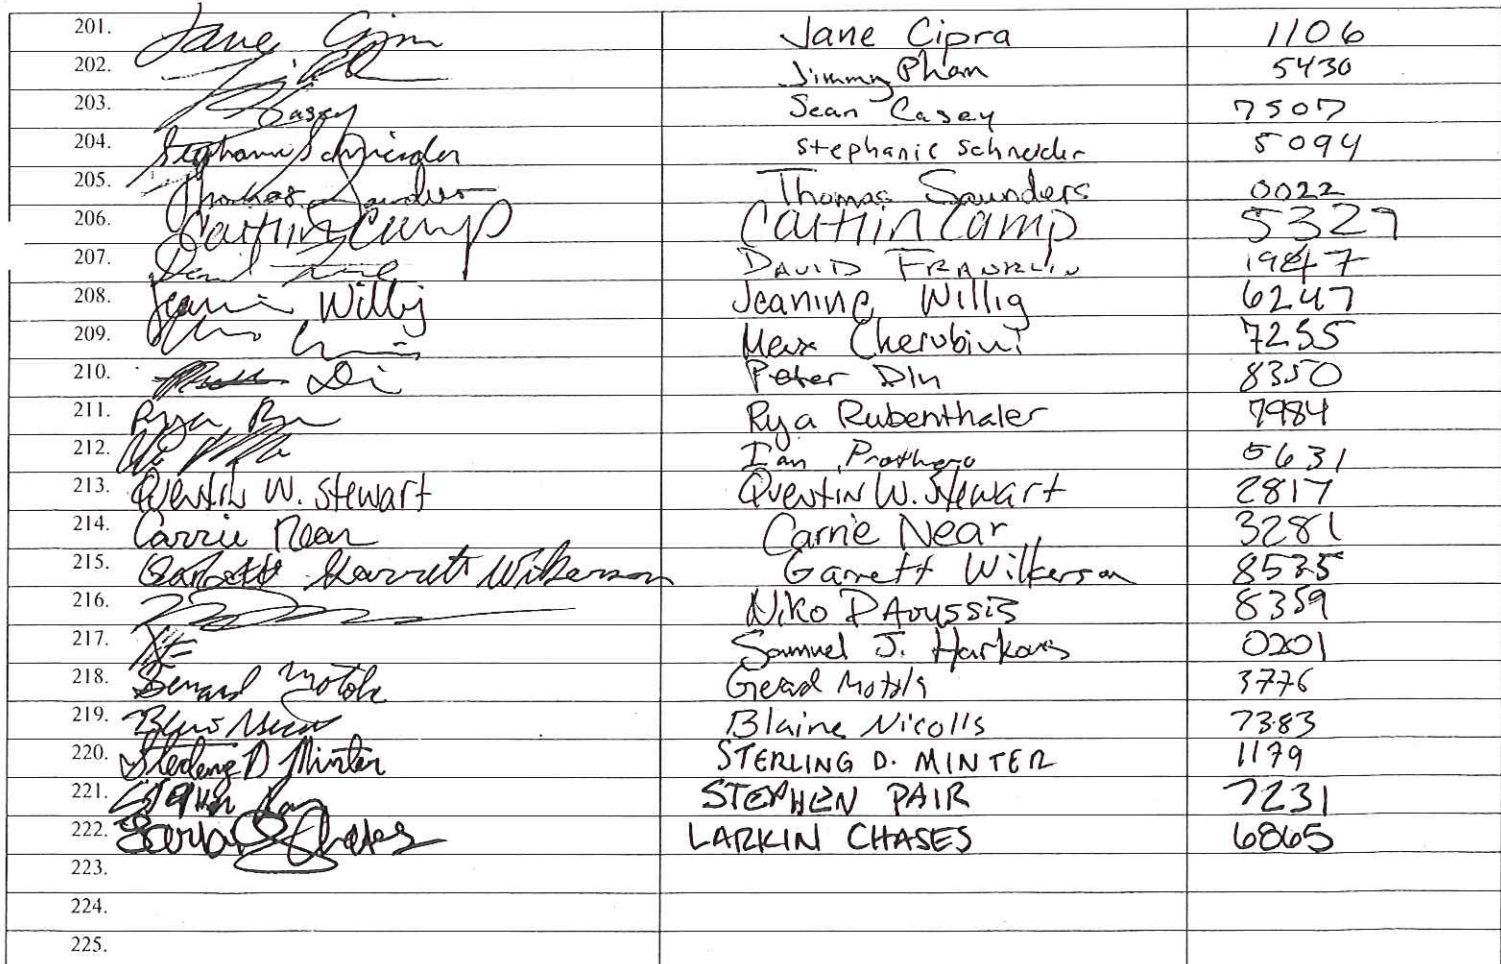 201. Jane Cipra Jane Cipra 1106
202. Jimmy Phan 5430
203. Casey Sean Casey 7507
204. Stephanie Schneider Stephanie Schneider 5094
205. Thomas Saunders Thomas Saunders 0022
206. Caitlin Camp Caitlin Camp 5329
207. DAVID FRANKLIN
208. Jeanine Willig Jeanine Willig 6247
209. Cherubini 7255
210. Peter Din 8350
211. Rya Rubenthaler 7984
212. Ian Prothero 5631
213. Quentin W. Stewart Quentin W. Stewart 2817
214. Carrie Near Carrie Near 3281
215. Garrett Wilkerson Garrett Wilkerson 8535
216. Niko 8359
217. Samuel J. 0201
218. 3776
219. Blaine Nicolls 7383
220. Sterling D Minter STERLING D. MINTER 1179
221. Stephen STEPHEN PAIR 7231
222. LARKIN CHASES 6865
223.
224.
225.